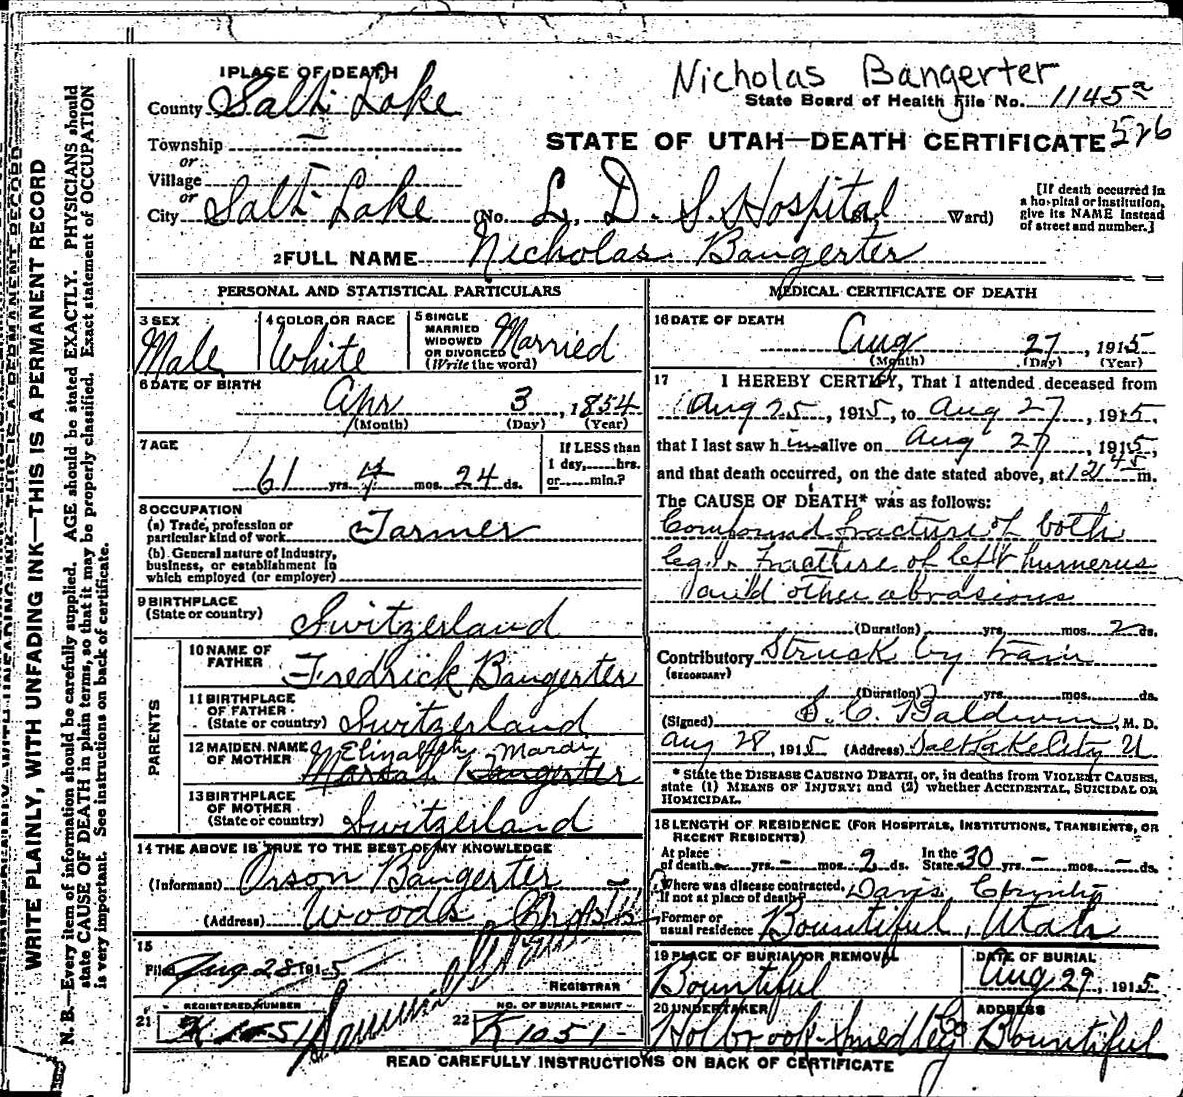 WRITE PLAINLY, WITH UNFADING INK—THIS IS A PERMANENT RECORD
N. B.—Every item of information should be carefully supplied. AGE should be stated EXACTLY. PHYSICIANS should
state CAUSE OF DEATH in plain terms, so that it may be properly classified. Exact statement of OCCUPATION
is very important. See instructions on back of certificate.
Nicholas Bangerter
1 PLACE OF DEATH
County Salt Lake
State Board of Health File No. 1145a
Township
STATE OF UTAH—DEATH CERTIFICATE 526
or
Village
or
City Salt Lake (No. L. D. S. Hospital St. Ward)
[If death occurred in
a hospital or institution,
give its NAME instead
of street and number.]
2 FULL NAME Nicholas Bangerter
PERSONAL AND STATISTICAL PARTICULARS
3 SEX
Male
4 COLOR OR RACE
White
5 SINGLE
MARRIED
WIDOWED
OR DIVORCED
(Write the word)
Married
6 DATE OF BIRTH
Apr 3, 1854
(Month) (Day) (Year)
7 AGE
61 yrs. 4 mos. 24 ds.
If LESS than
1 day, hrs.
or min.?
8 OCCUPATION
(a) Trade, profession or
particular kind of work Farmer
(b) General nature of Industry,
business, or establishment in
which employed (or employer)
9 BIRTHPLACE
(State or country) Switzerland
PARENTS
10 NAME OF
FATHER Fredrick Bangerter
11 BIRTHPLACE
OF FATHER
(State or country) Switzerland
12 MAIDEN NAME
OF MOTHER Elizabeth Mardi
Bangerter
13 BIRTHPLACE
OF MOTHER
(State or country) Switzerland
14 THE ABOVE IS TRUE TO THE BEST OF MY KNOWLEDGE
(Informant) Orson Bangerter
(Address) Woods Cross
15
Filed Aug 28 1915
REGISTRAR
REGISTERED NUMBER
21 K 1051
NO. OF BURIAL PERMIT
22 K 1051
MEDICAL CERTIFICATE OF DEATH
16 DATE OF DEATH
Aug 27, 1915
(Month) (Day) (Year)
17 I HEREBY CERTIFY, That I attended deceased from
Aug 25, 1915, to Aug 27, 1915.
that I last saw him alive on Aug 27, 1915,
and that death occurred, on the date stated above, at 12 45 m.
The CAUSE OF DEATH* was as follows:
Compound fracture of both
legs. Fracture of left humerus
and other abrasions
(Duration) yrs. mos. 2 ds.
Contributory Struck by train
(SECONDARY)
(Duration) yrs. mos. ds.
(Signed) S. C. Baldwin, M. D.
Aug 28, 1915 (Address) Salt Lake City U
* State the DISEASE CAUSING DEATH, or, in deaths from VIOLENT CAUSES,
state (1) MEANS OF INJURY; and (2) whether ACCIDENTAL, SUICIDAL OR
HOMICIDAL.
18 LENGTH OF RESIDENCE (FOR HOSPITALS, INSTITUTIONS, TRANSIENTS, OR
RECENT RESIDENTS)
At place
of death - yrs. - mos. 2 ds. In the
State 30 yrs. - mos. - ds.
Where was disease contracted,
If not at place of death? Davis County
Former or
usual residence Bountiful, Utah
19 PLACE OF BURIAL OR REMOVAL
Bountiful
DATE OF BURIAL
Aug 29, 1915
20 UNDERTAKER
Holbrook-Smedley Co
ADDRESS
Bountiful
READ CAREFULLY INSTRUCTIONS ON BACK OF CERTIFICATE